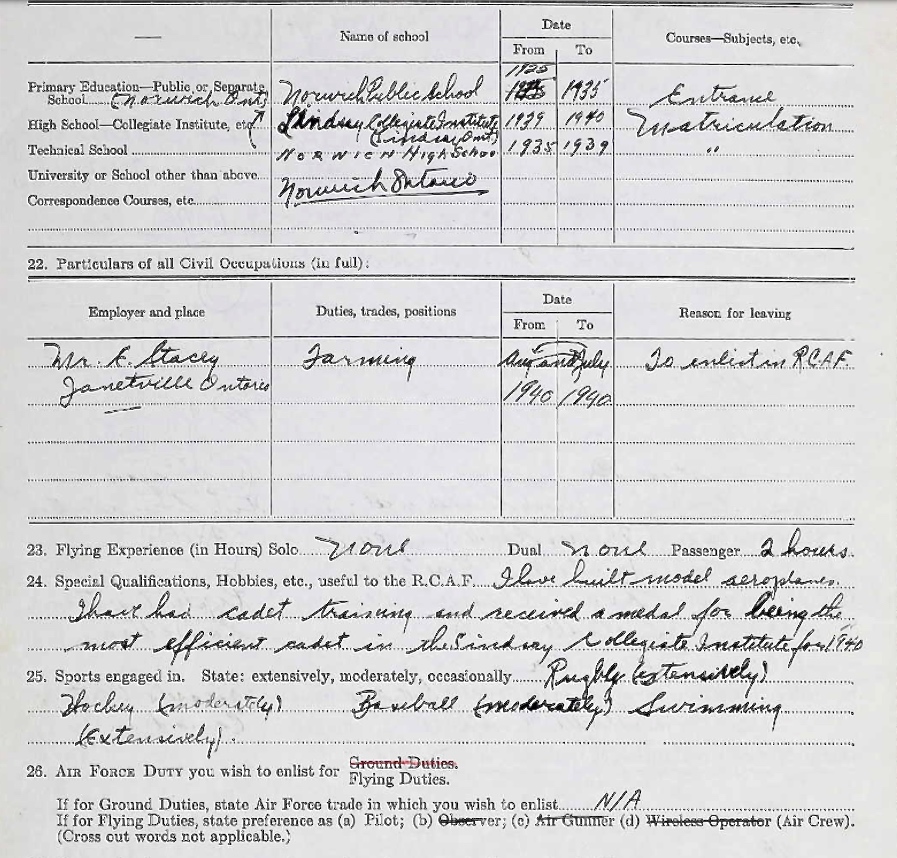 —
Name of school
Date
From To
Courses—Subjects, etc.
Primary Education—Public or Separate School (Norwich Ont) Norwich Public School 1925 1935 Entrance
High School—Collegiate Institute, etc. Lindsay Collegiate Institute (Lindsay Ont) 1939 1940 Matriculation
Technical School NORWICH High School 1935 1939 "
University or School other than above Norwich Ontario
Correspondence Courses, etc.
22. Particulars of all Civil Occupations (in full):
Employer and place
Duties, trades, positions
Date
From To
Reason for leaving
Mr. Stacey Farming Aug and July To enlist in R.C.A.F.
Janetville Ontario 1940 1940
23. Flying Experience (in Hours) Solo None Dual None Passenger 2 hours.
24. Special Qualifications, Hobbies, etc., useful to the R.C.A.F. I have built model aeroplanes.
I have had cadet training and received a medal for being the
most efficient cadet in the Lindsay Collegiate Institute for 1940
25. Sports engaged in. State: extensively, moderately, occasionally Rugby (extensively)
Hockey (moderately) Baseball (moderately) Swimming
(Extensively).
26. AIR FORCE DUTY you wish to enlist for Ground Duties.
Flying Duties.
If for Ground Duties, state Air Force trade in which you wish to enlist N/A
If for Flying Duties, state preference as (a) Pilot; (b) Observer; (c) Air Gunner (d) Wireless Operator (Air Crew).
(Cross out words not applicable.)